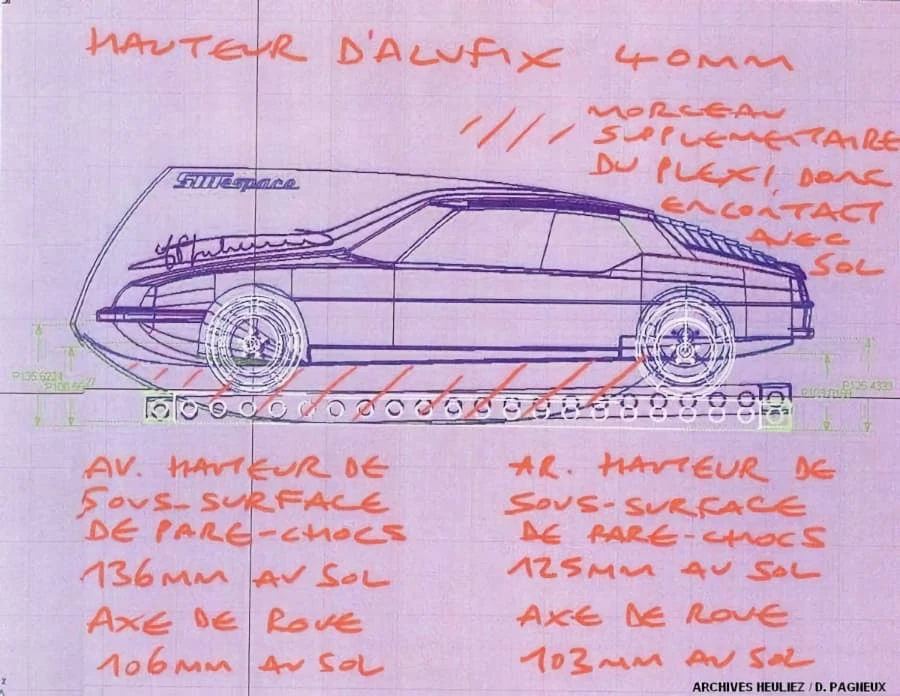 HAUTEUR D'ALUFIX 40MM
MORCEAU
SUPPLEMENTAIRE
DU PLEXI, DONC
EN CONTACT
AVEC
SOL
SMespace
AV. HAUTEUR DE
SOUS-SURFACE
DE PARE-CHOCS
136MM AU SOL
AXE DE ROUE
106MM AU SOL
AR. HAUTEUR DE
SOUS-SURFACE
DE PARE-CHOCS
125MM AU SOL
AXE DE ROUE
103MM AU SOL
ARCHIVES HEULIEZ / D. PAGNEUX